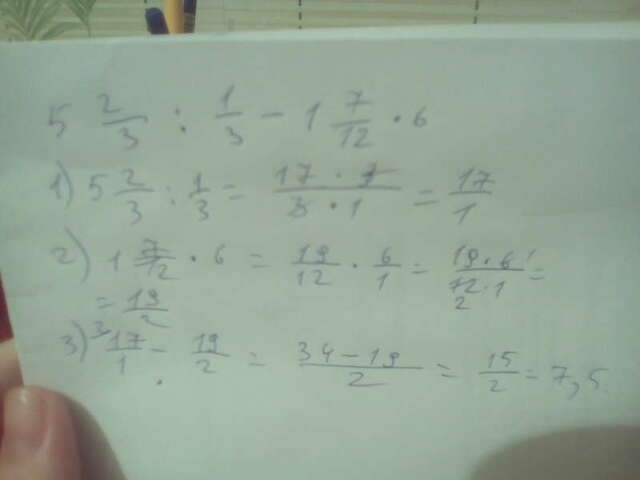 5 2/3 : 1/3 - 1 7/12 · 6
1) 5 2/3 : 1/3 = 17 · 3/3 · 1 = 17/1
2) 1 7/12 · 6 = 19/12 · 6/1 = 19 · 6 1/12 · 1 2 =
= 19/2
3) 17/1 - 19/2 = 34 - 19/2 = 15/2 = 7,5